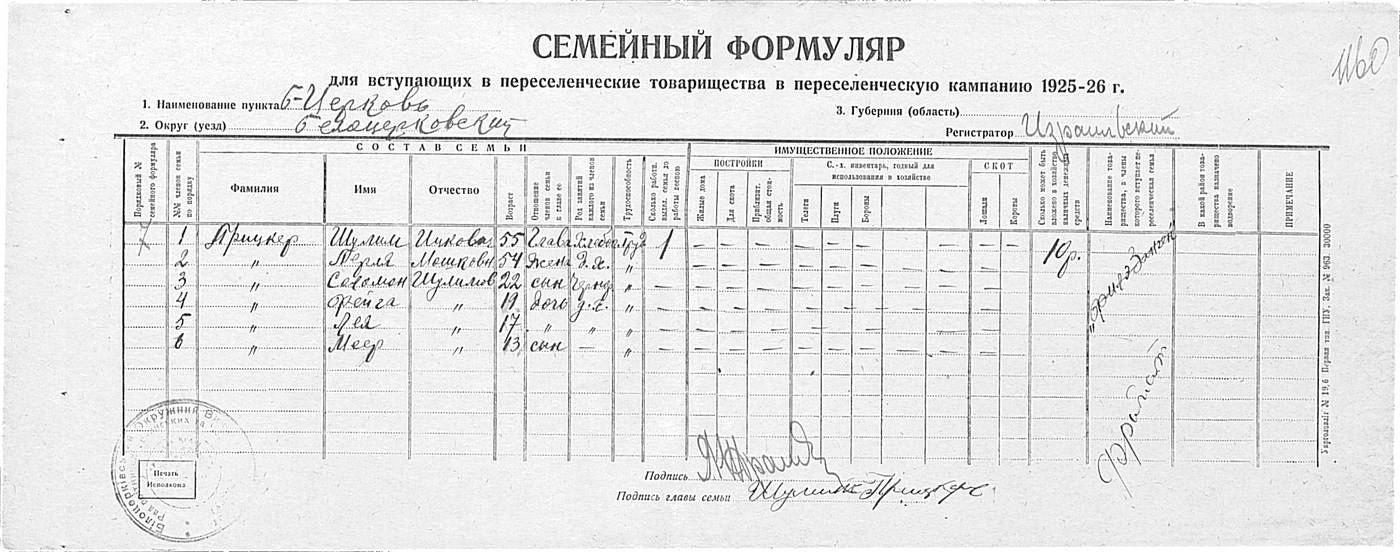 СЕМЕЙНЫЙ ФОРМУЛЯР
для вступающих в переселенческие товарищества в переселенческую кампанию 1925-26 г.
1160
1. Наименование пункта Б-Церковь
3. Губерния (область)
2. Округ (уезд) Белоцерковский
Регистратор Израильский
СОСТАВ СЕМЬИ
ИМУЩЕСТВЕННОЕ ПОЛОЖЕНИЕ
Порядковый № семейного формуляра
№№ членов семьи по порядку
Фамилия
Имя
Отчество
Возраст
Отношение членов семьи к главе ее
Род занятий каждого из членов семьи
Трудоспособность
Сколько работн. высел. семьи до работы весною
ПОСТРОЙКИ
Жилые дома
Для скота
Приблизит. общая стоимость
С.-х. инвентарь, годный для использования в хозяйстве
Телеги
Плуги
Бороны
СКОТ
Лошади
Коровы
Сколько может быть вложено в хозяйство наличных денежных средств
Наименование товарищества, в члены которого вступает переселенческая семья
В какой район товарищества назначено водворение
ПРИМЕЧАНИЕ
1 Прицкер Шулим Ицкович 55 Глава 1 — — — — — — — — — 10р.
2 " Перля Мошковн 54 жена д.х. " — — — — — — — — — —
3 " Соломон Шулимов 22 сын " — — — — — — — — — —
4 " Фейга " 19 дочь д.х. " — — — — — — — — — —
5 " Лея " 17 " " " — — — — — — — — — —
6 " Меер " 13 сын — " — — — — — — — — — —
Укрголовліт № 19,6 Первая тип. ГПУ. Зак. № 963. 30000
Білоцерківс Окружний Ви
Печать
Исполкома
Подпись
Подпись главы семьи Шулим Прицкер